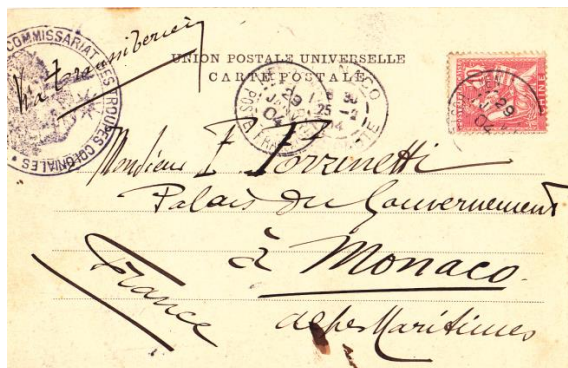 COMMISSARIAT DES TROUPES COLONIALES
Via Transsiberien
UNION POSTALE UNIVERSELLE
CARTE POSTALE
29
04
25
CHINE
29
04
Monsieur F. Forzinetti
Palais du Gouvernement
à Monaco
France
Alpes Maritimes